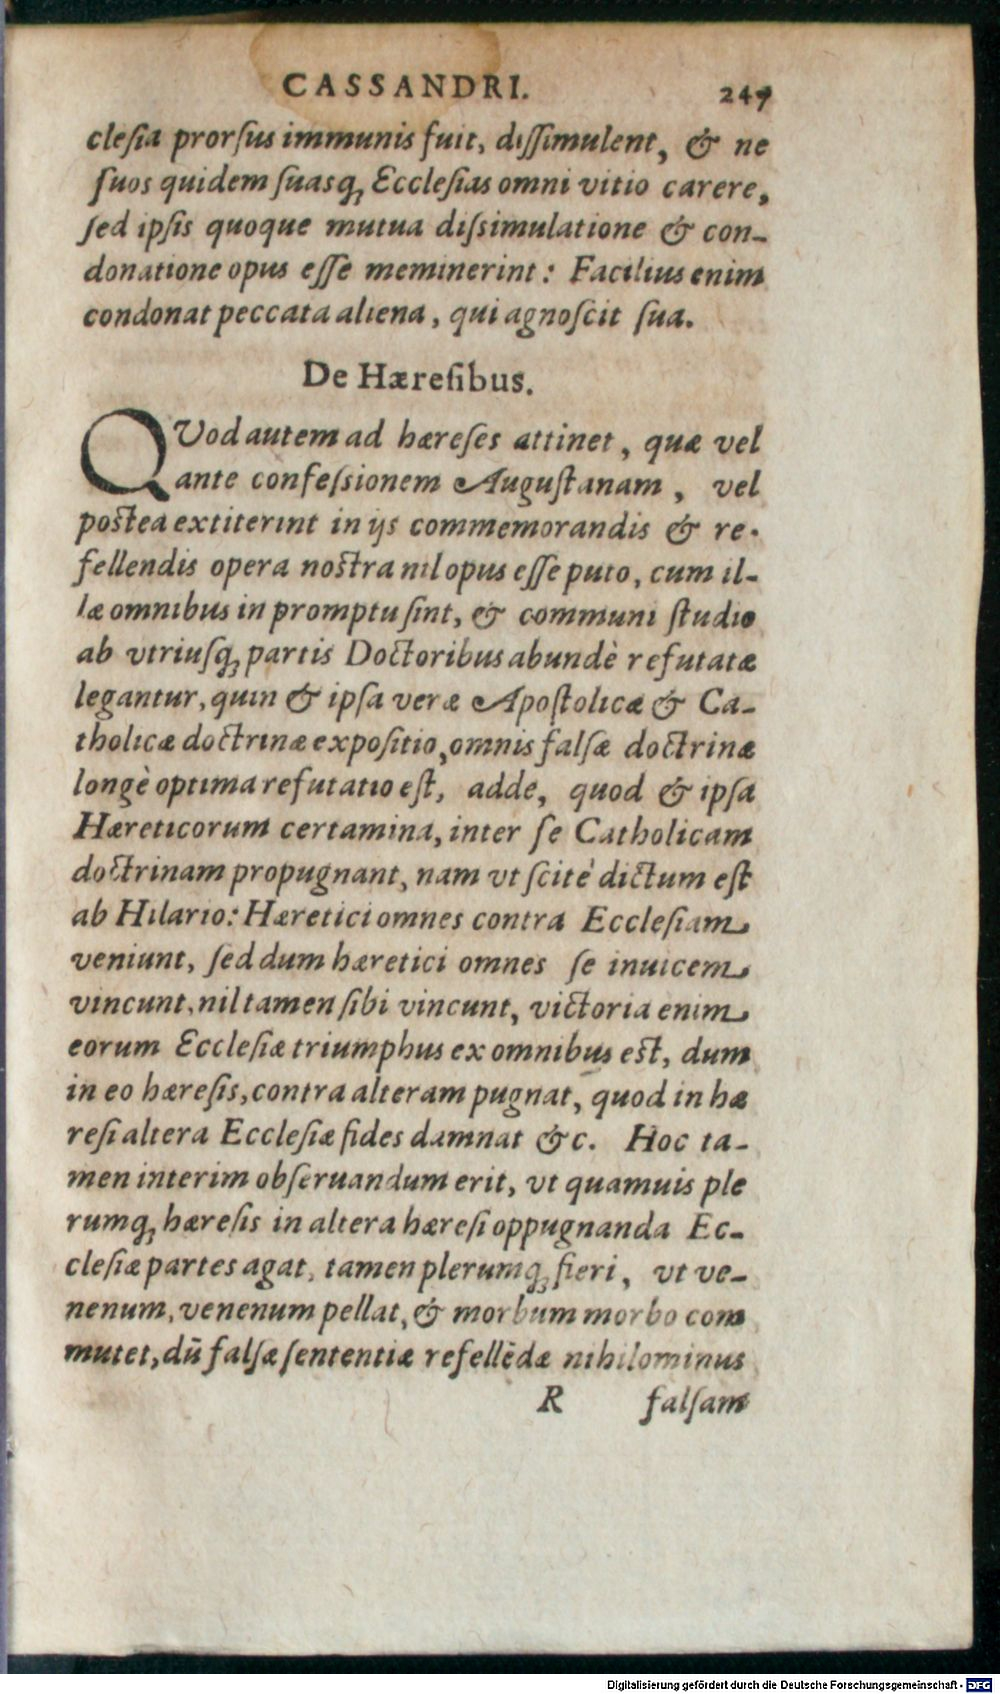 CASSANDRI. 247
cleſia prorſus immunis fuit, diſſimulent, & ne
ſuos quidem ſuasq́; Eccleſias omni vitio carere,
ſed ipſis quoque mutua diſsimulatione & con-
donatione opus eſſe meminerint: Facilius enim
condonat peccata aliena, qui agnoſcit ſua.
De Hæreſibus.
QVod autem ad hæreſes attinet, quæ vel
ante confeſsionem Auguſtanam, vel
poſtea extiterint in ijs commemorandis & re-
fellendis opera noſtra nil opus eſſe puto, cum il-
læ omnibus in promptu ſint, & communi ſtudio
ab vtriuſq́; partis Doctoribus abundè refutatæ
legantur, quin & ipſa veræ Apoſtolicæ & Ca-
tholicæ doctrinæ expoſitio, omnis falſæ doctrinæ
longè optima refutatio eſt, adde, quod & ipſa
Hæreticorum certamina, inter ſe Catholicam
doctrinam propugnant, nam vt ſcitè dictum eſt
ab Hilario: Hæretici omnes contra Eccleſiam
veniunt, ſed dum hæretici omnes ſe inuicem
vincunt, nil tamen ſibi vincunt, victoria enim
eorum Eccleſiæ triumphus ex omnibus eſt, dum
in eo hæreſis, contra alteram pugnat, quod in hæ
reſi altera Eccleſiæ fides damnat &c. Hoc ta-
men interim obſeruandum erit, vt quamuis ple
rumq́; hæreſis in altera hæreſi oppugnanda Ec-
cleſiæ partes agat, tamen plerumq́; fieri, vt ve-
nenum, venenum pellat, & morbum morbo com
mutet, dū falſæ ſententiæ refellēdæ nihilominus
R falſam
Digitalisierung gefördert durch die Deutsche Forschungsgemeinschaft - DFG